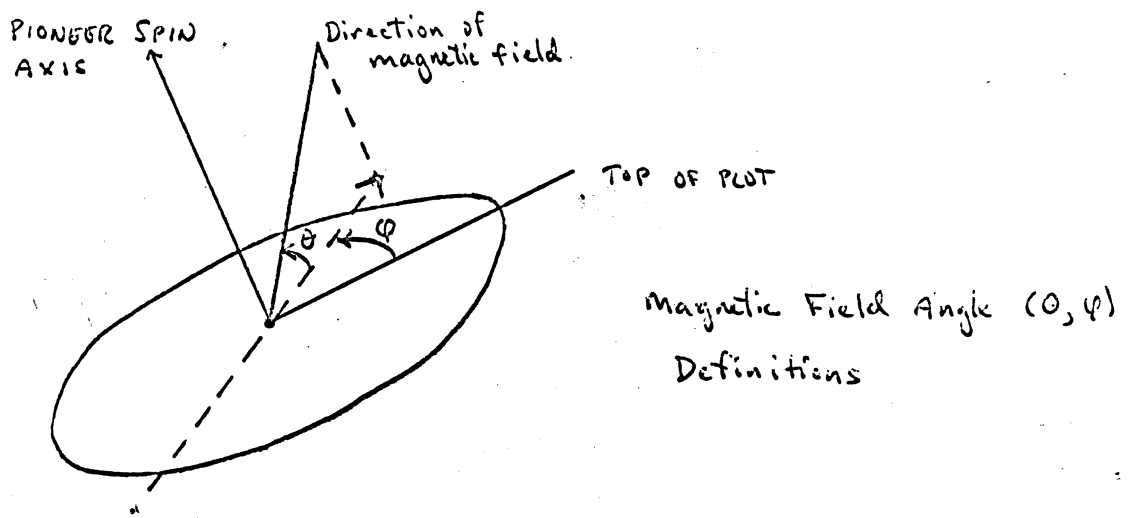 PIONEER SPIN
AXIS
Direction of
magnetic field.
TOP OF PLOT
θ
φ
Magnetic Field Angle (θ, φ)
Definitions